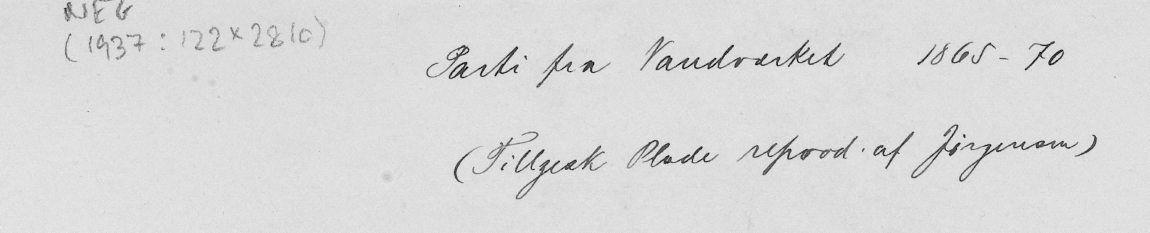 NEG
(1937:122x2810)
Parti fra Vandværket 1865-70
(Tillgesk Plade reprod. af Jørgensen)